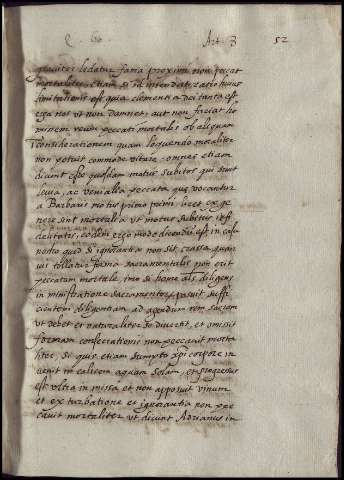 Q. 60. Art. 3 52
graviter ledatur fama proximi non peccat
mortaliter, etiam si id intendat, ratio huius
limitationis est quia clementia dei tanta est
ergo nos ut non damnet, aut non faciat ho
minem reum peccati mortalis ob aliquam
considerationem quam loquendo moraliter
non potuit commode vitare. omnes etiam
dicunt esse quosdam motus subitos qui sunt
levia, ac venialia peccata que vocantur
a Barbaris motus primo primi licet ex ge
nere sint mortalia ut motus subitus infi
delitatis, eodem ergo modo dicendum est in casu
nostro quod si ignorantia non sit crassa quam
vis tollatur forma sacramentalis non erit
peccatum mortale, imo si homo als diligens
in ministratione sacramentorum posuit suffi
cientem diligentiam ad agendum rem sacram
ut debet et naturaliter se divertit, et omisit
formam consecrationis non peccavit morta
liter, si quis etiam sumpto xpi corpore in
venit in calicem aquam solam, et progressus
est ultra in missa et non apposuit vinum
et ex turbatione et ignorantia non pec
cavit mortaliter ut dicunt Adrianus in